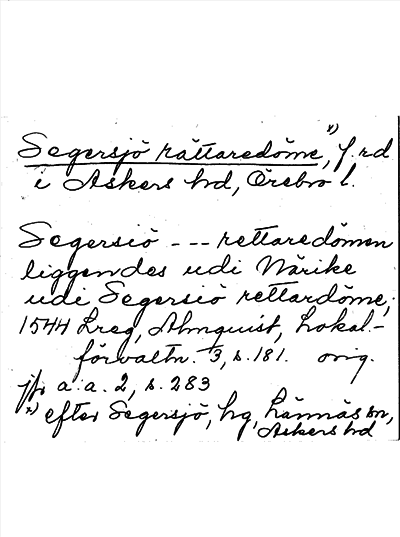 Segersjö rättaredöme, x) f.rd
i Askers hd, Örebro l.
Segersiö --- rettaredömen
liggendes udi Närike
udi Segersiö rettardöme;
1544 Lreg, Almquist, Lokal-
förvaltn. 3, s. 181. orig.
jfr a.a. 2, s. 283
x) efter Segersjö, hg, Lännäs sn,
Askers hd